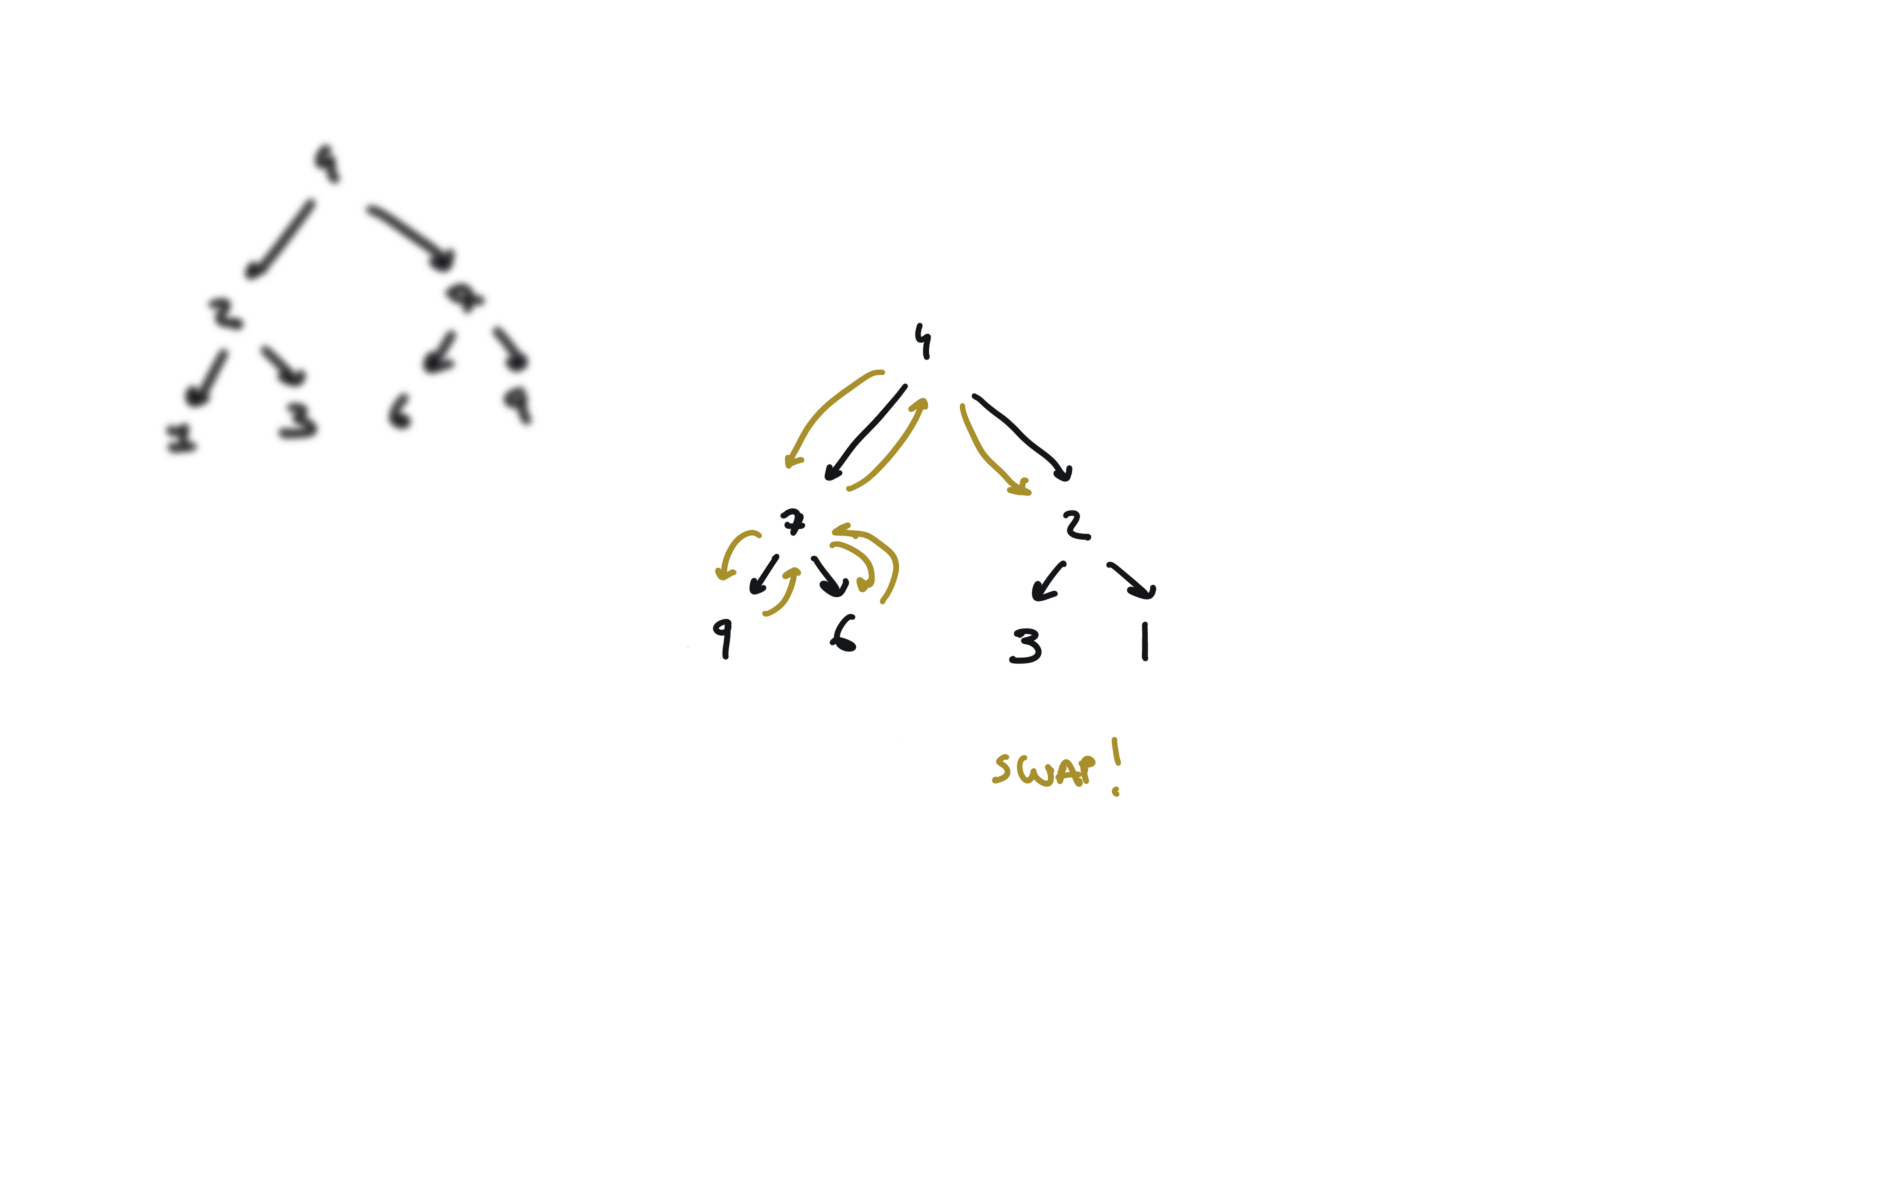 4
2 7
1 3 6 9
4
7 2
9 6 3 1
SWAP!